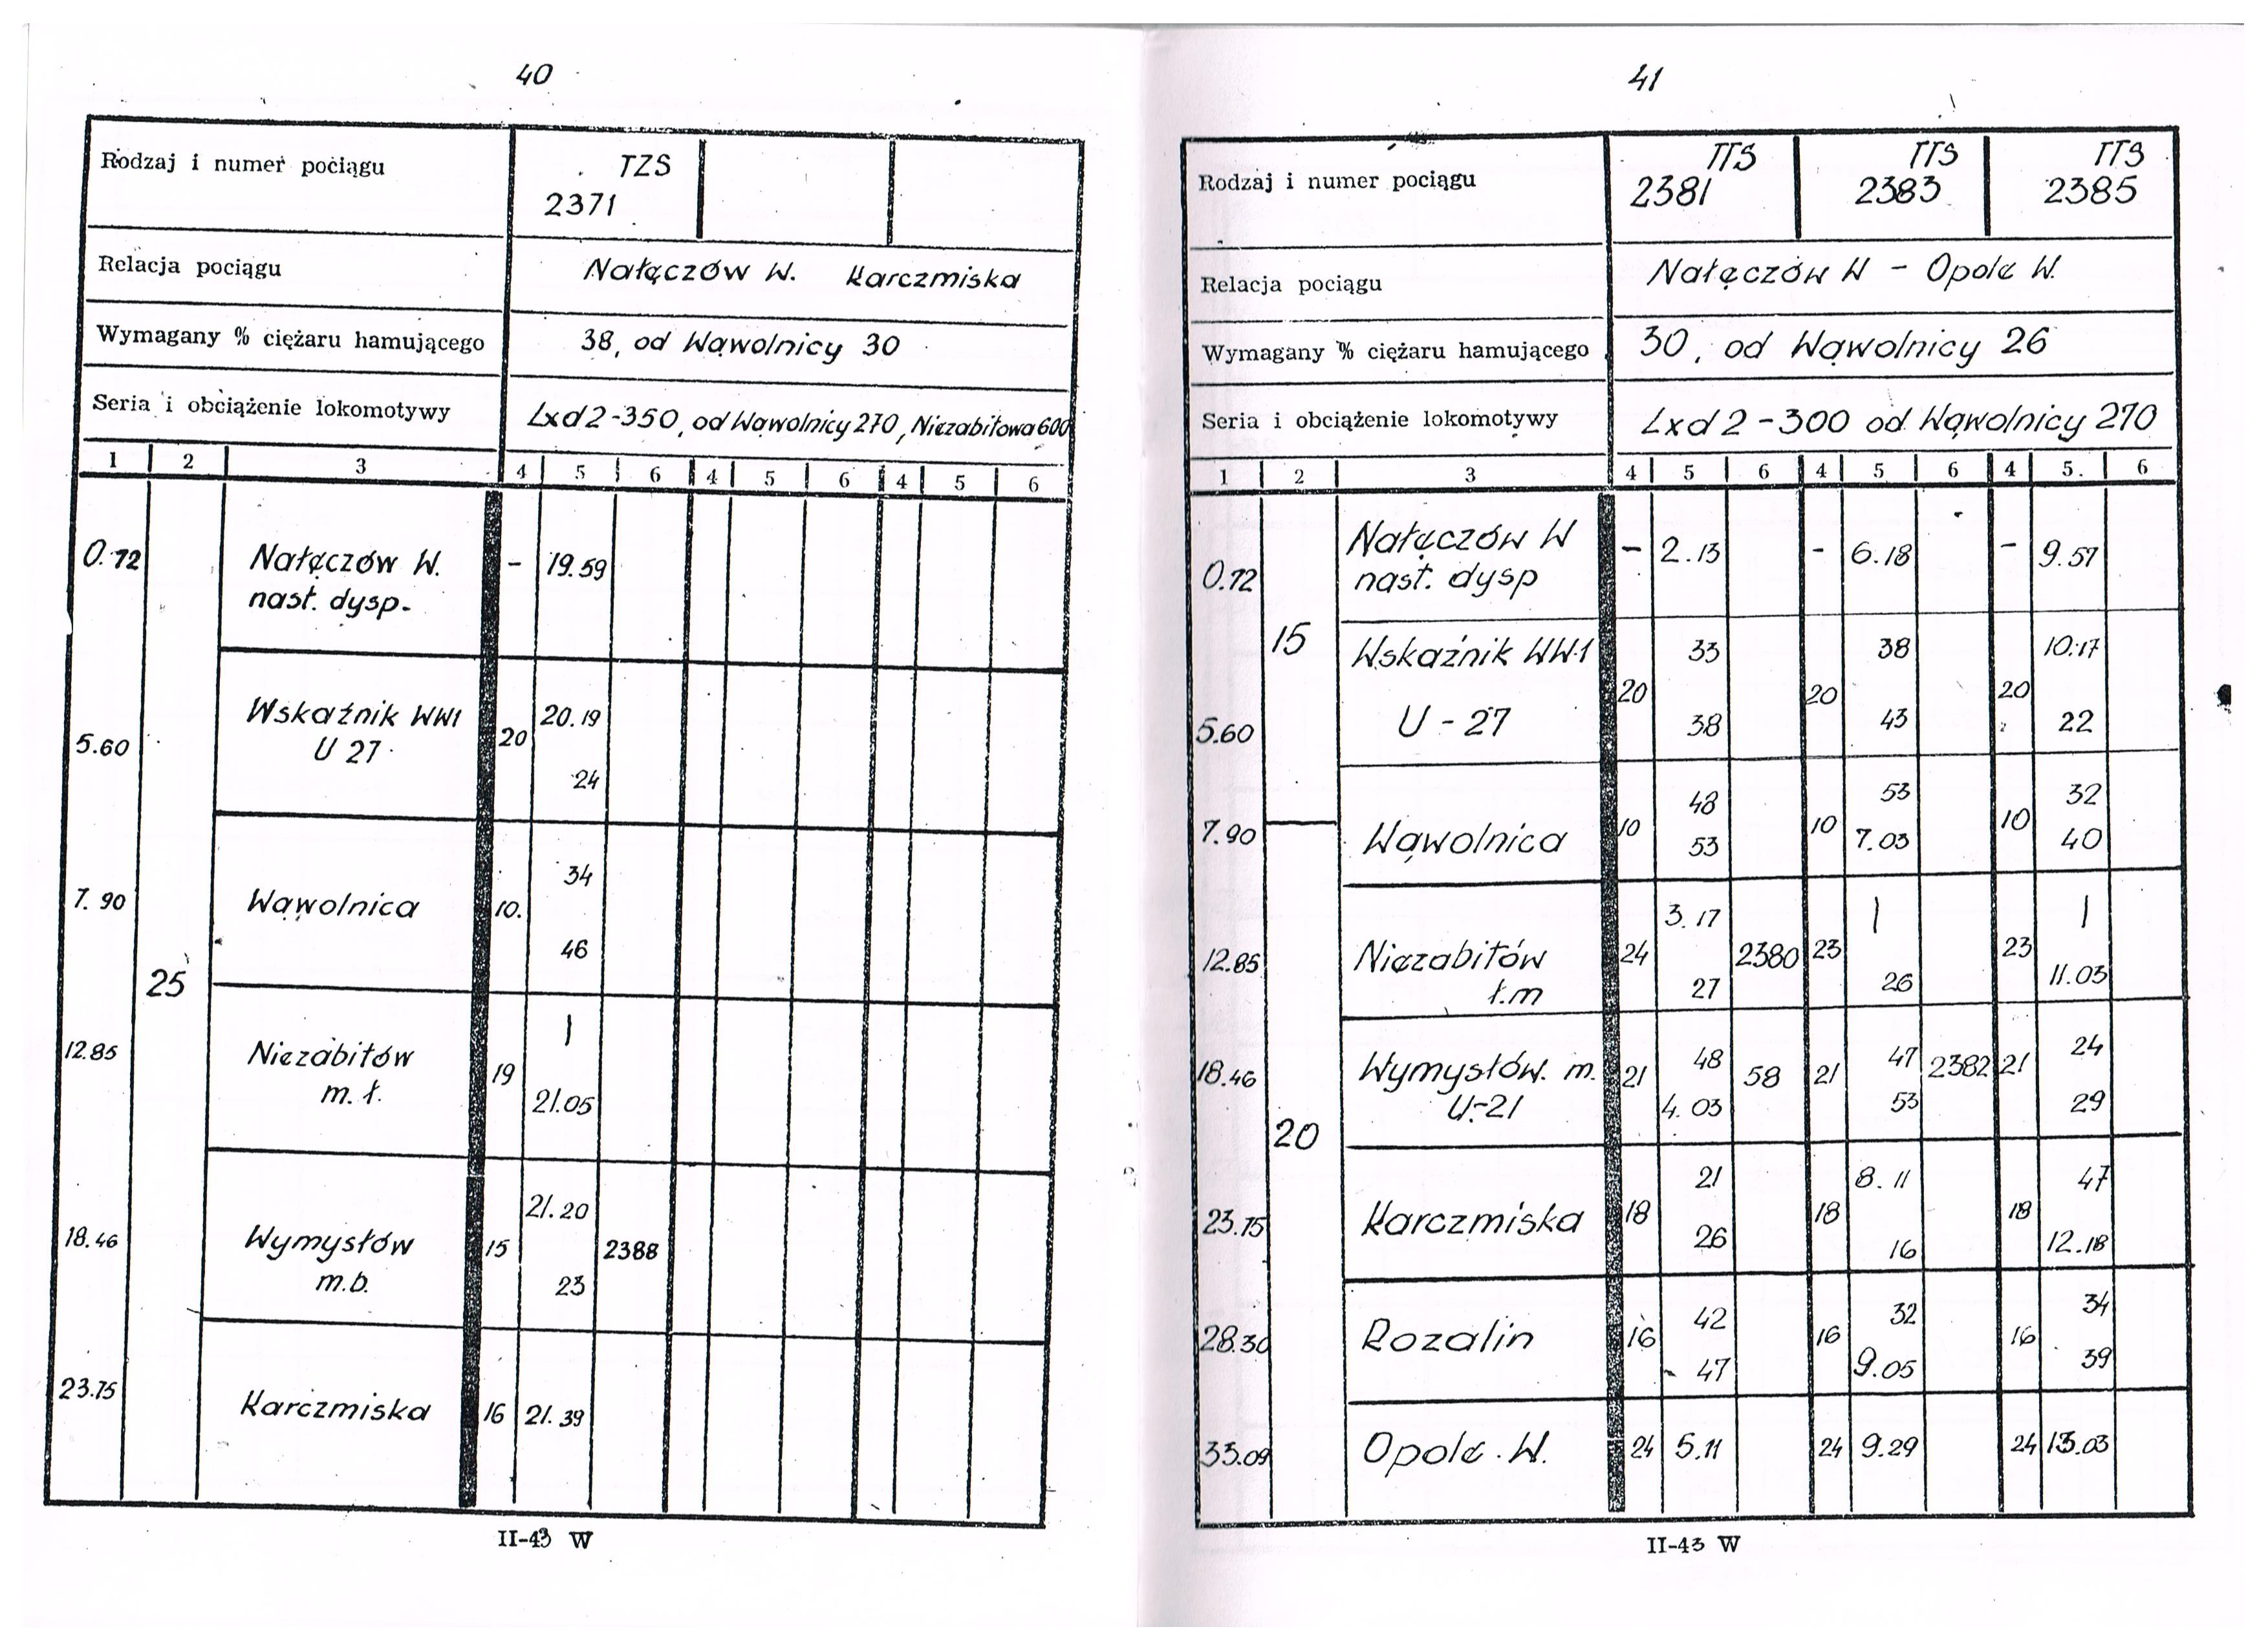 40
Rodzaj i numer pociągu TZS
2371
Relacja pociągu Nałęczów W. Karczmiska
Wymagany % ciężaru hamującego 38, od Wąwolnicy 30
Seria i obciążenie lokomotywy Lxd2-350, od Wąwolnicy 270, Niezabitowa 600
1 2 3 4 5 6 4 5 6 4 5 6
0.72 Nałęczów W. - 19.59
nast. dysp.
Wskaźnik WW1 20.19
5.60 U 27 20
24
34
7.90 Wąwolnica 10.
46
25
12.85 Niezabitów 19 |
m.ł. 21.05
21.20
18.46 Wymysłów 15 2388
m.b. 23
23.75 Karczmiska 16 21.39
II-43 W
41
Rodzaj i numer pociągu TTS TTS TTS
2381 2383 2385
Relacja pociągu Nałęczów W - Opole W.
Wymagany % ciężaru hamującego 30, od Wąwolnicy 26
Seria i obciążenie lokomotywy Lxd2-300 od Wąwolnicy 270
1 2 3 4 5 6 4 5 6 4 5. 6
Nałęczów W - 2.13 - 6.18 - 9.57
0.72 nast. dysp
15 Wskaźnik WW1 33 38 10.17
20 20 20
5.60 U - 27 38 43 22
48 53 32
7.90 Wąwolnica 10 10 10
53 7.03 40
3.17 | |
12.85 Niezabitów 24 2380 23 23
ł.m 27 26 11.03
18.46 Wymysłów. m. 21 48 58 21 47 2382 21 24
U-21 4.03 53 29
20
21 8.11 47
23.75 Karczmiska 18 18 18
26 16 12.18
42 32 34
28.30 Rozalin 16 16 16
47 9.05 39
33.09 Opole W. 24 5.11 24 9.29 24 13.03
II-43 W